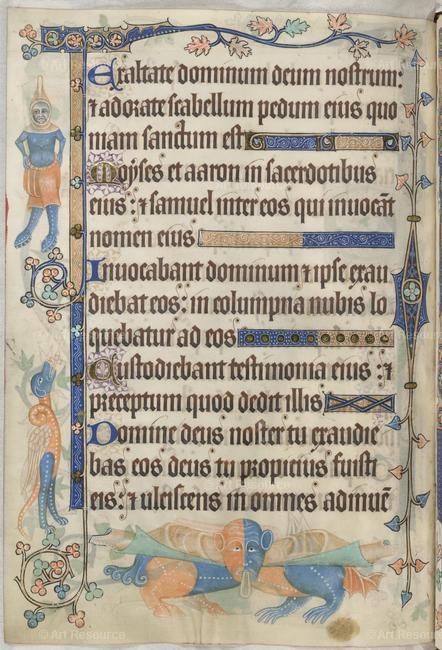 Exaltate dominum deum nostrum:
⁊ adorate scabellum pedum eius quo
niam sanctum est
Moyses et aaron in sacerdotibus
eius: ⁊ samuel inter eos qui inuocāt
nomen eius
Inuocabant dominum ⁊ ipse exau
diebat eos: in columpna nubis lo
quebatur ad eos
Custodiebant testimonia eius: ⁊
preceptum quod dedit illis
Domine deus noster tu exaudie
bas eos deus tu propicius fuisti
eis: ⁊ ulciscens in omnes adinuē
© Art Resource © Art Resource